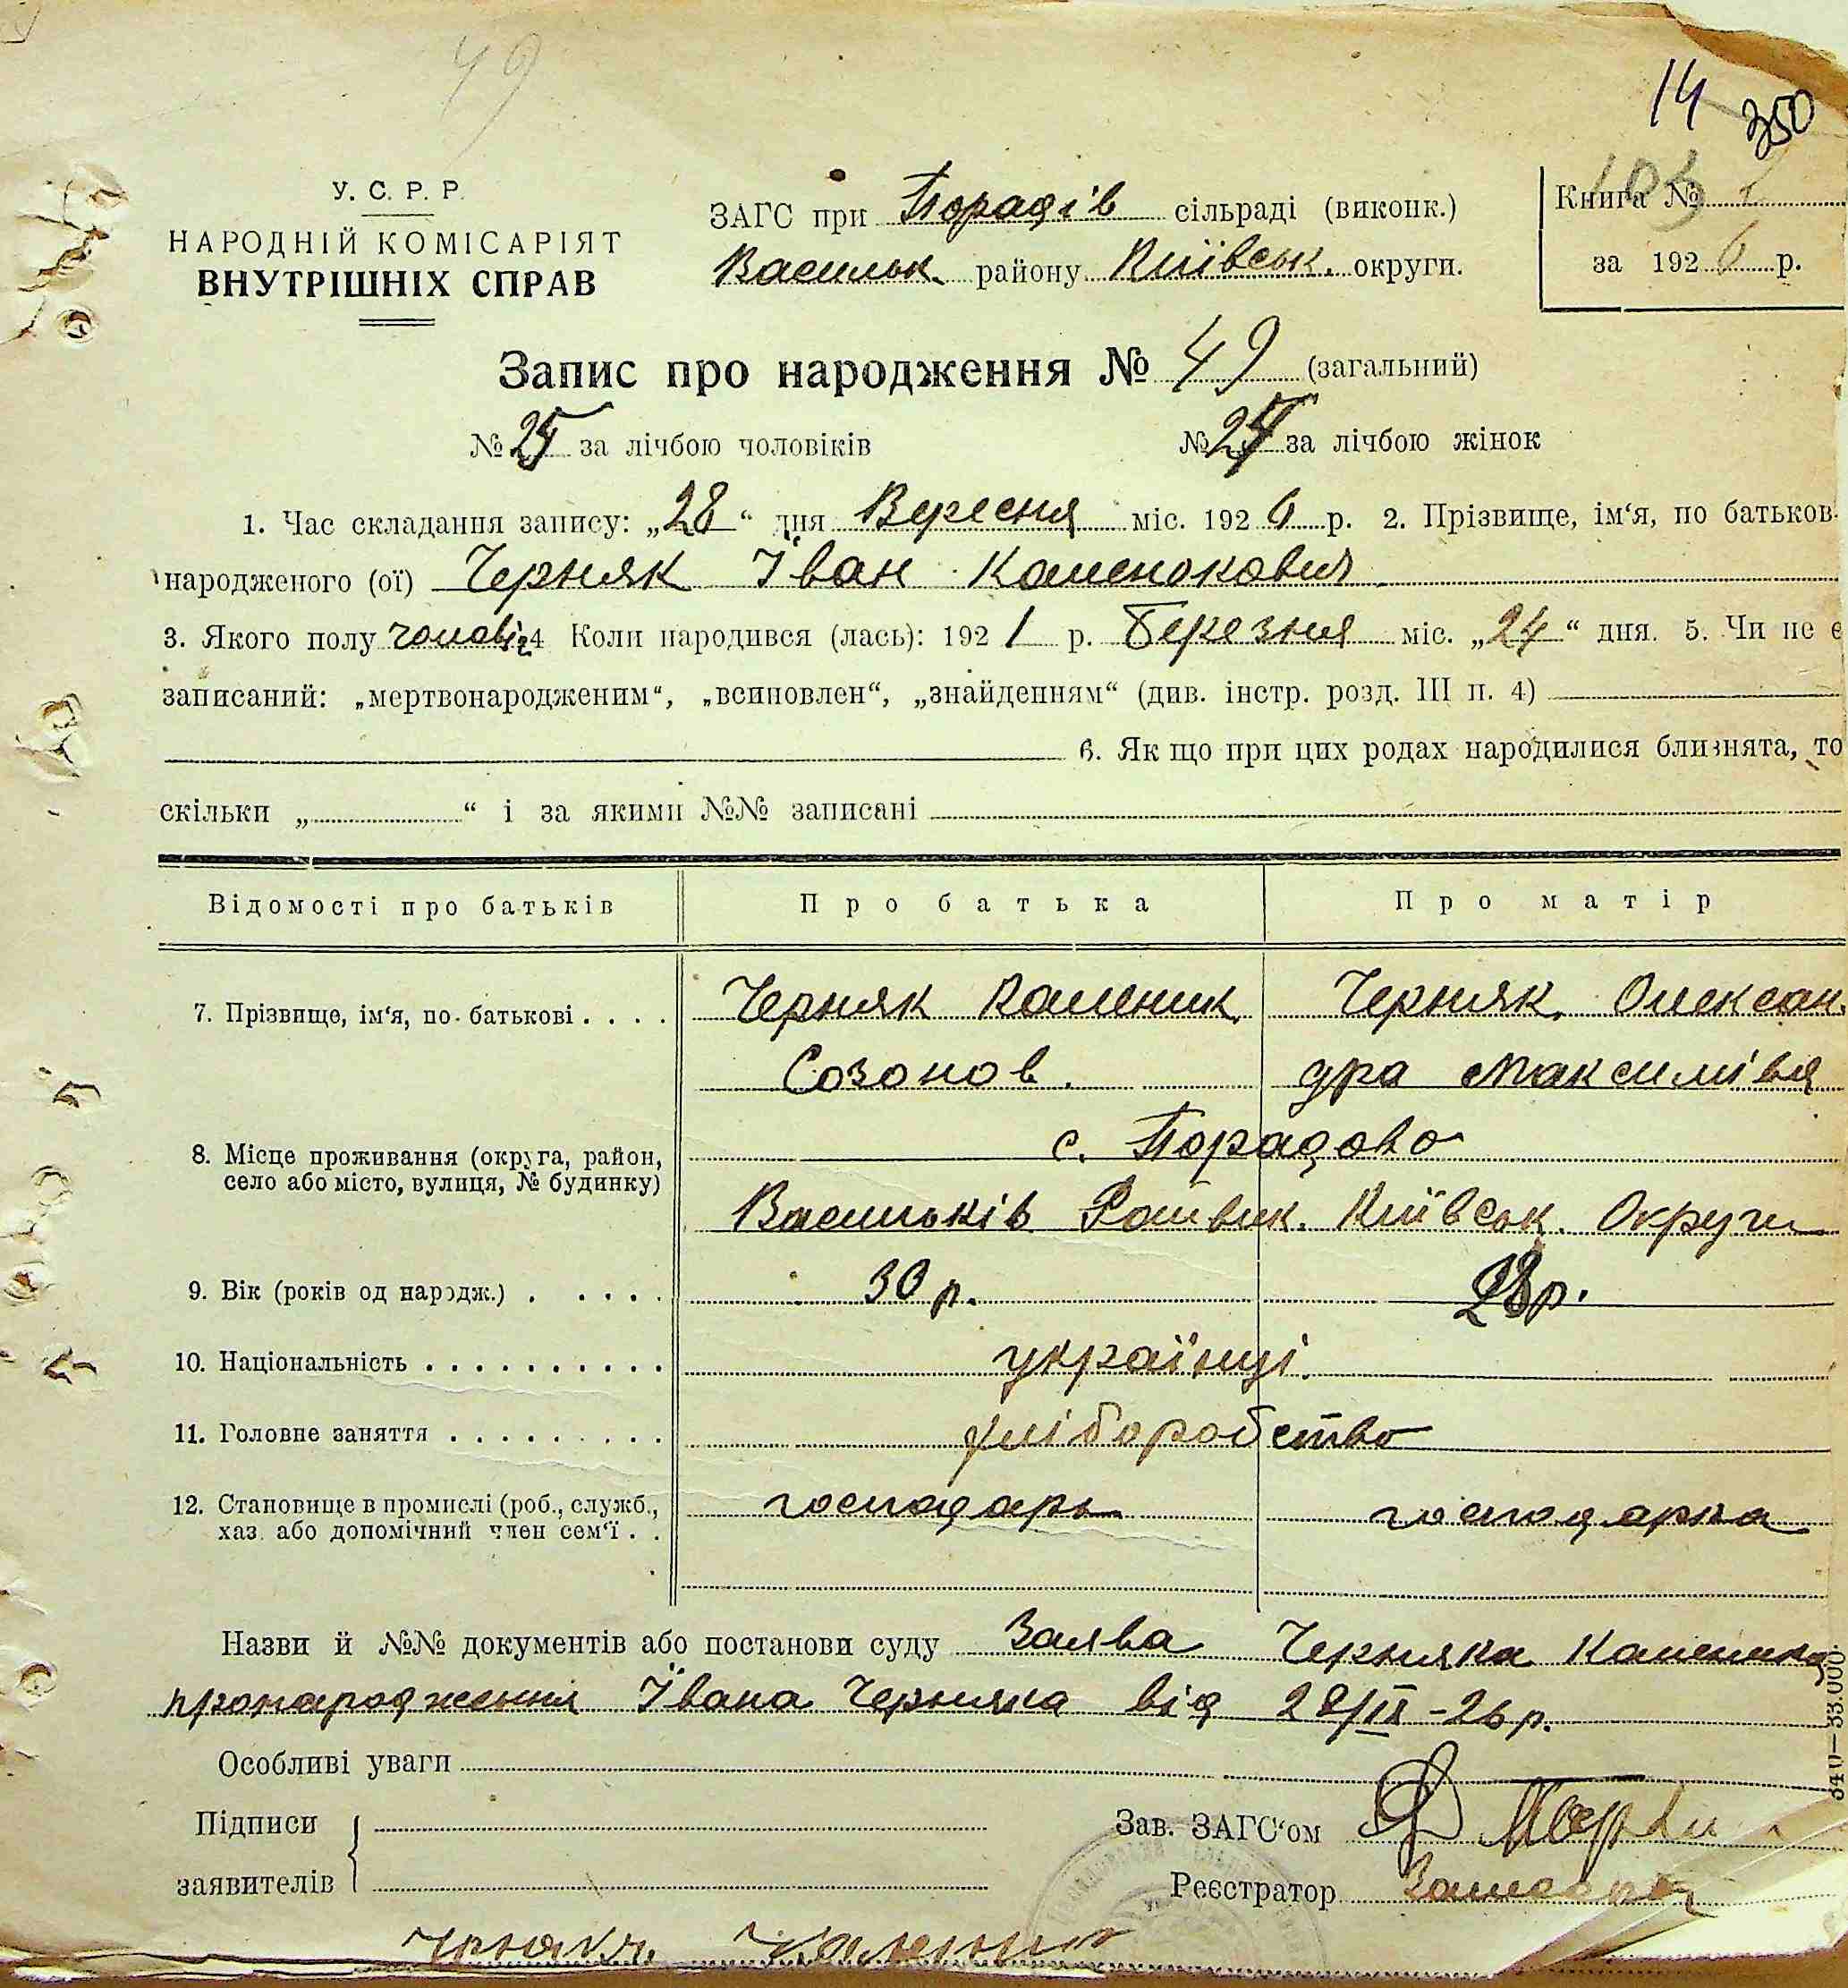 49
14
350
103
У. С. Р. Р.
НАРОДНІЙ КОМІСАРІЯТ
ВНУТРІШНІХ СПРАВ
ЗАГС при Порадів сільраді (виконк.)
Васильк. району Київськ. округи.
Книга №
за 1926 р.
Запис про народження № 49 (загальний)
№ 25 за лічбою чоловіків № 24 за лічбою жінок
1. Час складання запису: „28“ дня Вересня міс. 1926 р. 2. Прізвище, ім‘я, по батьков.
народженого (ої) Черняк Їван Каленокович
3. Якого полу чоловіч 4 Коли народився (лась): 1921 р. Березня міс. „24“ дня. 5. Чи не є
записаний: „мертвонародженим“, „всиповлен“, „знайденням“ (див. інстр. розд. III п. 4)
6. Як що при цих родах народилися близнята, то
скільки „ “ і за якими №№ записані
Відомості про батьків Про батька Про матір
7. Прізвище, ім‘я, по батькові . . . . Черняк Каленик Черняк Олексан
Созонов. дра Максимівя
8. Місце проживання (округа, район, с. Порадово
село або місто, вулиця, № будинку)
Васильків Райвик. Київськ. Округи
9. Вік (років од народж.) . . . . . 30 р. 28 р.
10. Національність . . . . . . . . . . українці.
11. Головне заняття . . . . . . . . . хліборобство
12. Становище в промислі (роб., служб., господарь господарка
хаз. або допомічний член сем‘ї . .
Назви й №№ документів або постанови суду Заява Черняка Каленика
пронародження Ївана Черняка від 28/IX-26 р.
Особливі уваги
Підписи
заявителів
Зав. ЗАГС‘ом
Реєстратор
Каленик